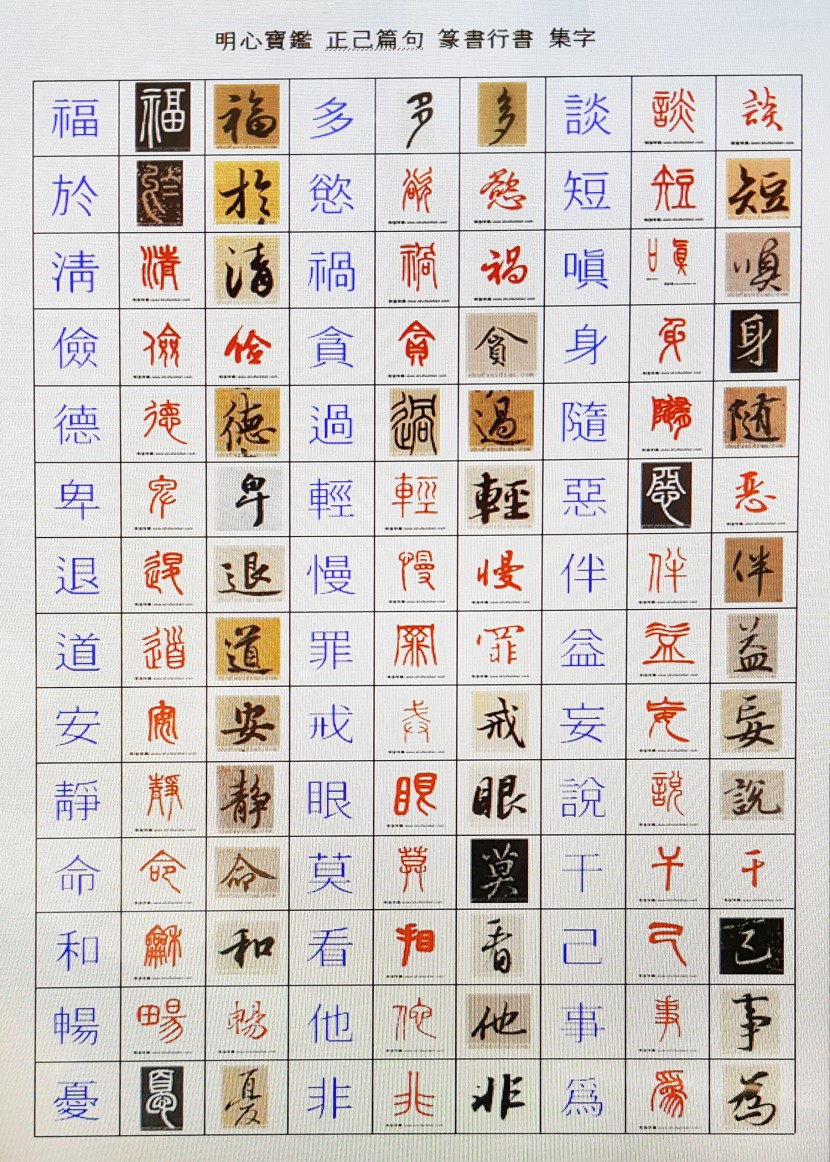 明心寶鑑 正己篇句 篆書行書 集字
福 福 福 多 多 多 談 談 談
於 於 於 慾 慾 慾 短 短 短
淸 清 清 禍 禍 禍 嗔 嗔 嗔
儉 儉 儉 貪 貪 貪 身 身 身
德 德 德 過 過 過 隨 隨 随
卑 卑 卑 輕 輕 輕 惡 惡 惡
退 退 退 慢 慢 慢 伴 伴 伴
道 道 道 罪 罪 罪 益 益 益
安 安 安 戒 戒 戒 妄 妄 妄
靜 靜 静 眼 眼 眼 說 說 說
命 命 命 莫 莫 莫 干 干 干
和 龢 和 看 看 看 己 己 己
暢 暢 暢 他 佗 他 事 事 事
憂 憂 憂 非 非 非 爲 爲 為